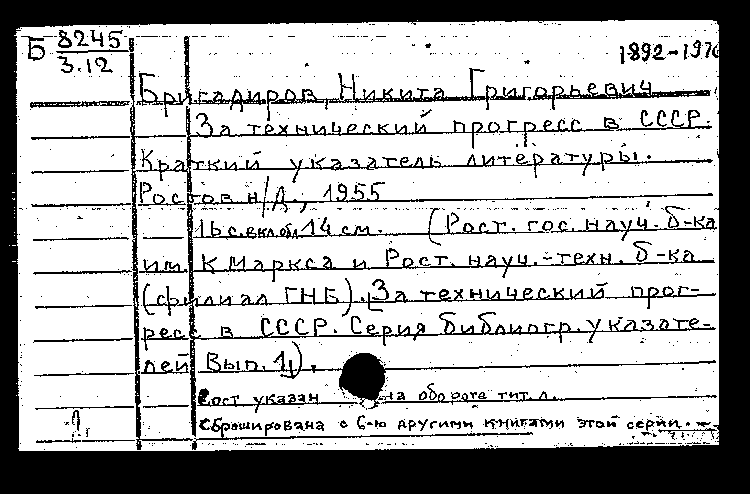 Б 8245
3.12
1892-1976
Бригадиров, Никита Григорьевич
За технический прогресс в СССР.
Краткий указатель литературы.
Ростов н/Д., 1955
16 с. вкл. обл. 14 см. (Рост. гос. науч. б-ка
им. К Маркса и Рост. науч.-техн. б-ка
(филиал ГНБ). [За технический прог-
ресс в СССР. Серия библиогр. указате-
лей Вып. 1]).
Сост указан на обороте тит. л.
Сброширована с 6-ю другими книгами этой серии.